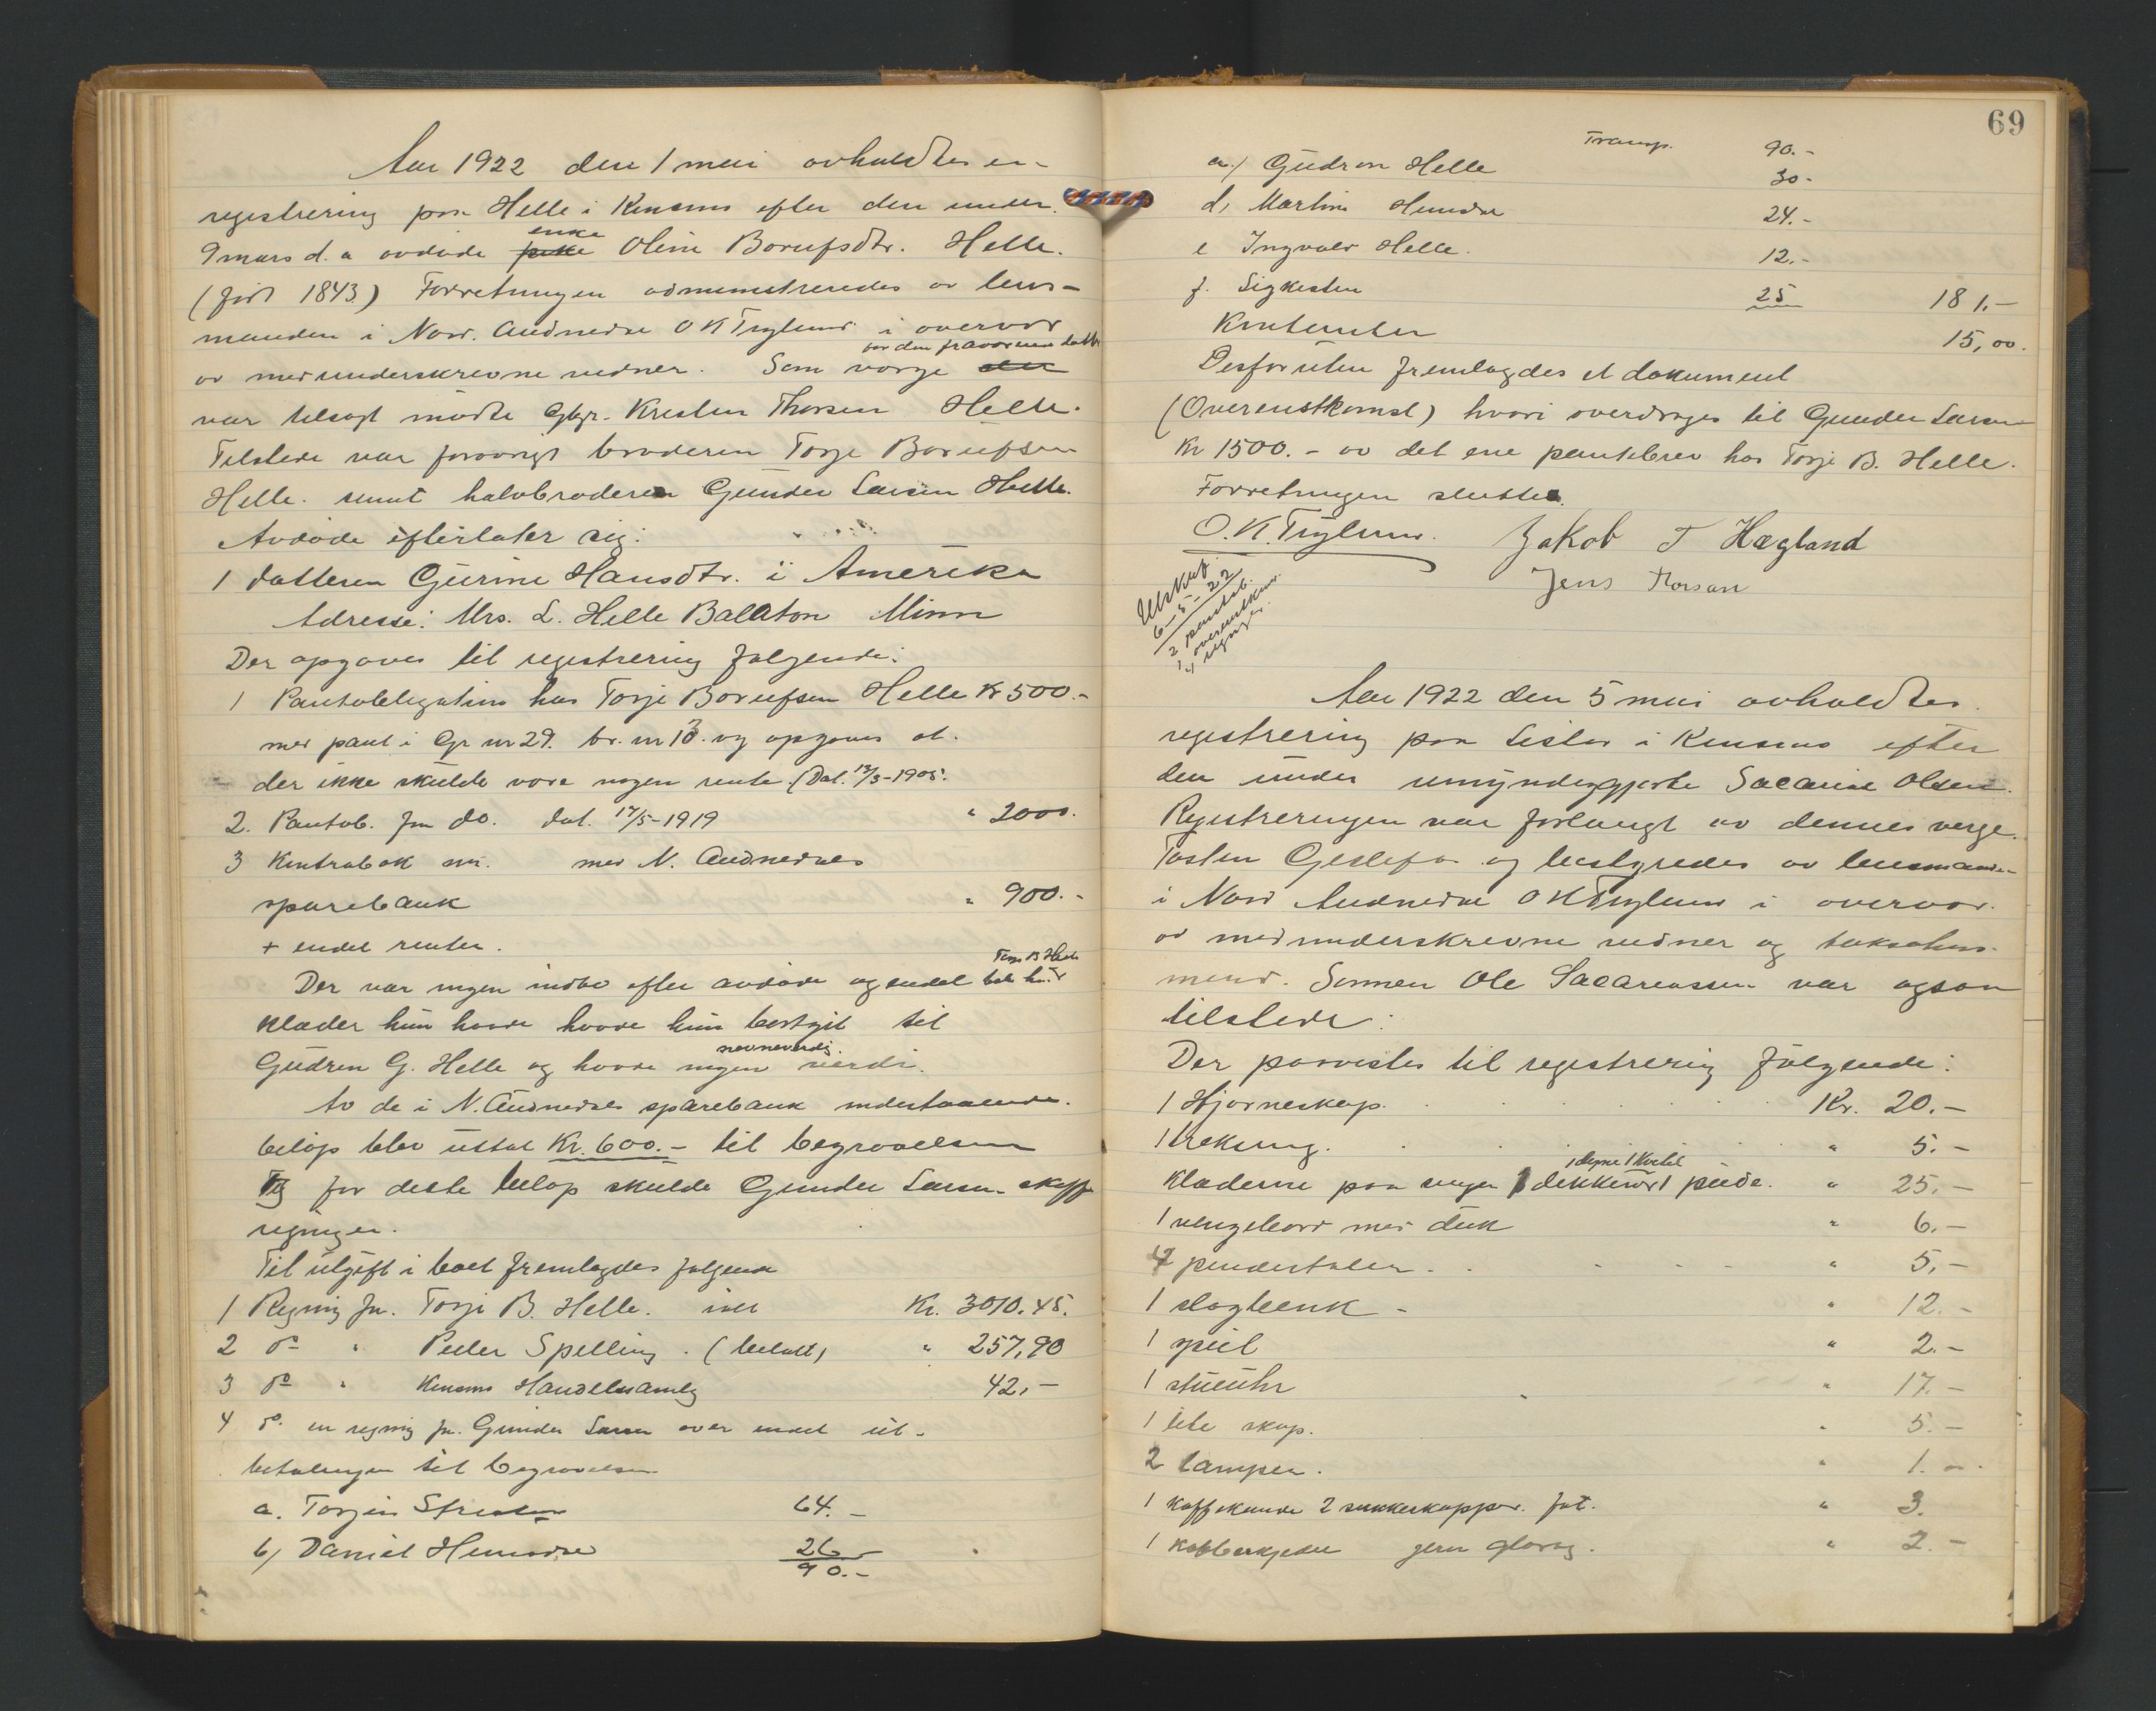 Aar 1922 den 1 mai avholdtes en
registrering paa Helle i Kinsms efter den under
9 mars d. a avdøde enke Oline Borufsdtr. Helle.
(født 1843) Forretningen administreredes av lens-
manden i Nord. Audnedal O K Tryland i overvær
av medunderskrevne vidner. Som værge for den fraværende datter
var tilsagt mødte Gbr. Kristen Thorsen Helle.
Tilstede var forøvrigt broderen Torje Borufsen
Helle. samt halvbroderen Gunder Larsen Helle.
Avdøde efterlater sig:
1 datteren Gurine Hansdtr. i Amerika
Adresse: Mrs. L. Helle Balaton Minn
Der opgaves til registrering følgende:
1 Pantobligation hos Torje Borufsen Helle Kr 500.-
med pant i Gr nr 29. br. nr 13. og opgaves at
der ikke skulde være nogen rente (Dat. 12/5-1905.
2. Pantob. fra do. dat. 17/5-1919 " 2000.
3 Kontrabok nr. med N. Audnedals
sparebank " 900.-
+ endel renter.
Der var ingen indbo efter avdøde og endel Torje B Helle
klæder hun havde havde hun bortgit til
Gudrun G. Helle og havde ingen nevneverdig verdi.
Av de i N. Audnedals sparebank indestaaende
beløp blev uttat Kr. 600.- til begravelsen
og for dette beløp skulde Gunder Larsen skaffe
regninger.
Til utgift i boet fremlagdes følgende
1 Regning fra. Torje B. Helle. Kr. 3010.45.
2 do " Peder Spelling. (betalt) " 257,90
3 do " Kinsms Handelssamlg 42,-
4 do. en regning fra. Gunder Larsen over endel ut-
betalinger til begravelsen
a. Torjus 64.-
b) Daniel Hunsdal 26.-
90.-
69
Transp. 90.-
c.) Gudrun Helle 30.-
d) Martin Hunsdal 24.-
e Ingvald Helle. 12.-
f. Ligkisten 25 181.-
Kontanter 15,00.
Desforuten fremlagdes et dokument
(Overenstkomst) hvori overdrages til Gunder Larsen
Kr 1500.- av det ene pantebrev hos Torje B. Helle.
Forretningen sluttet.
O. K. Tryland. Jakob T Hægland
Jens Thorsen
Utskrift
6-5-22
2 pantob.
1 overenskom.
4 regninger.
Aar 1922 den 5 mai avholdtes
registrering paa i Kinsms efter
den under umyndiggjorte Sacarias Olsen.
Registreringen var forlangt av dennes verge
Tosten og bestyredes av lensmanden
i Nord Audnedal O K Tryland i overvær
av medunderskrevne vidner og takstens-
mend. Sønnen Ole Sacariassen var ogsaa
tilstede:
Der paavistes til registrering følgende:
1 Hjørneskap. Kr. 20.-
1 trekseng. " 5.-
Klæderne paa sengen 1 dekken 1 dyne 1 kvitel 1 pude. " 25.-
1 vengebord med duk " 6.-
4 pindestoler. " 5,-
1 slagbenk - " 12.-
1 speil " 2.-
1 stueuhr " 17.-
1 lite skap. " 5.-
2 lamper. " 1.-
1 Kaffekande 2 sukkerkopper. fat. " 3.
1 Kobberkjedel jern " 2.-